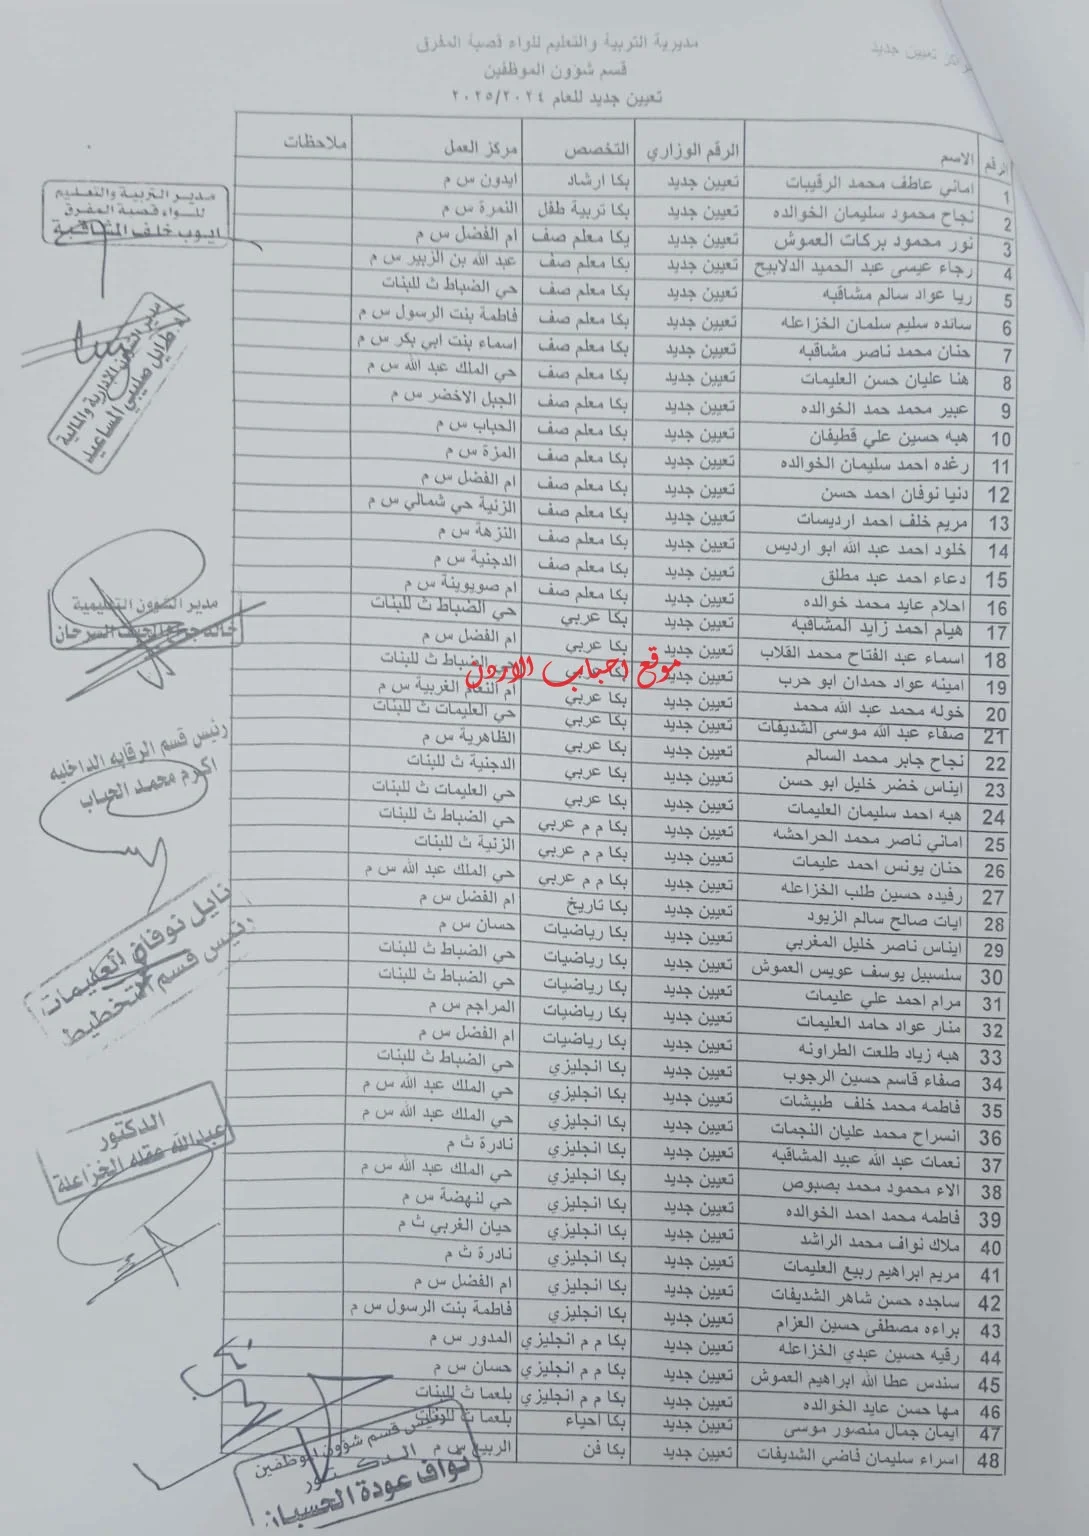 مراكز تعيين جديد
مديرية التربية والتعليم للواء قصبة المفرق
قسم شؤون الموظفين
تعيين جديد للعام ٢٠٢٥/٢٠٢٤
الرقم الاسم الرقم الوزاري التخصص مركز العمل ملاحظات
1 اماني عاطف محمد الرقيبات تعيين جديد بكا ارشاد ايدون س م
2 نجاح محمود سليمان الخوالده تعيين جديد بكا تربية طفل النمرة س م
3 نور محمود بركات العموش تعيين جديد بكا معلم صف ام الفضل س م
4 رجاء عيسى عبد الحميد الدلابيح تعيين جديد بكا معلم صف عبد الله بن الزبير س م
5 ربا عواد سالم مشاقبه تعيين جديد بكا معلم صف حي الضباط ث للبنات
6 سانده سليم سلمان الخزاعله تعيين جديد بكا معلم صف فاطمة بنت الرسول س م
7 حنان محمد ناصر مشاقبه تعيين جديد بكا معلم صف اسماء بنت ابي بكر س م
8 هنا عليان حسن العليمات تعيين جديد بكا معلم صف حي الملك عبد الله س م
9 عبير محمد حمد الخوالده تعيين جديد بكا معلم صف الجبل الاخضر س م
10 هبه حسين علي قطيفان تعيين جديد بكا معلم صف الحباب س م
11 رغده احمد سليمان الخوالده تعيين جديد بكا معلم صف المزة س م
12 دنيا نوفان احمد حسن تعيين جديد بكا معلم صف ام الفضل س م
13 مريم خلف احمد ارديسات تعيين جديد بكا معلم صف الزنية حي شمالي س م
14 خلود احمد عبد الله ابو ارديس تعيين جديد بكا معلم صف النزهة س م
15 دعاء احمد عبد مطلق تعيين جديد بكا معلم صف الدجنية س م
16 احلام عايد محمد خوالده تعيين جديد بكا معلم صف ام صويوينة س م
17 هيام احمد زايد المشاقبه تعيين جديد بكا عربي حي الضباط ث للبنات
18 اسماء عبد الفتاح محمد القلاب تعيين جديد بكا عربي ام الفضل س م
19 امينه عواد حمدان ابو حرب تعيين جديد الضباط ث للبنات
موقع احباب الاردن
20 خوله محمد عبد الله محمد تعيين جديد بكا عربي ام النعام الغربية س م
21 صفاء عبد الله موسى الشديفات تعيين جديد بكا عربي حي العليمات ث للبنات
22 نجاح جابر محمد السالم تعيين جديد بكا عربي الظاهرية س م
23 ايناس خضر خليل ابو حسن تعيين جديد بكا عربي الدجنية ث للبنات
24 هبه احمد سليمان العليمات تعيين جديد بكا عربي حي العليمات ث للبنات
25 اماني ناصر محمد الحراحشه تعيين جديد بكا م م عربي حي الضباط ث للبنات
26 حنان يونس احمد عليمات تعيين جديد بكا م م عربي الزنية ث للبنات
27 رفيده حسين طلب الخزاعله تعيين جديد بكا م م عربي حي الملك عبد الله س م
28 ايات صالح سالم الزيود تعيين جديد بكا تاريخ ام الفضل س م
29 ايناس ناصر خليل المغربي تعيين جديد بكا رياضيات حسان س م
30 سلسبيل يوسف عويس العموش تعيين جديد بكا رياضيات حي الضباط ث للبنات
31 مرام احمد علي عليمات تعيين جديد بكا رياضيات حي الضباط ث للبنات
32 منار عواد حامد العليمات تعيين جديد بكا رياضيات المراجم س م
33 هبه زياد طلعت الطراونه تعيين جديد بكا رياضيات ام الفضل س م
34 صفاء قاسم حسين الرجوب تعيين جديد بكا انجليزي حي الضباط ث للبنات
35 فاطمه محمد خلف طبيشات تعيين جديد بكا انجليزي حي الملك عبد الله س م
36 انسراح محمد عليان النجمات تعيين جديد بكا انجليزي حي الملك عبد الله س م
37 نعمات عبد الله عبيد المشاقبه تعيين جديد بكا انجليزي نادرة ث م
38 الاء محمود محمد بصبوص تعيين جديد بكا انجليزي حي الملك عبد الله س م
39 فاطمه محمد احمد الخوالده تعيين جديد بكا انجليزي حي لنهضة س م
40 ملاك نواف محمد الراشد تعيين جديد بكا انجليزي حيان الغربي ث م
41 مريم ابراهيم ربيع العليمات تعيين جديد بكا انجليزي نادرة ث م
42 ساجده حسن شاهر الشديفات تعيين جديد بكا انجليزي ام الفضل س م
43 براءه مصطفى حسين العزام تعيين جديد بكا انجليزي فاطمة بنت الرسول س م
44 رقيه حسين عبدي الخزاعله تعيين جديد بكا م م انجليزي المدور س م
45 سندس عطا الله ابراهيم العموش تعيين جديد بكا م م انجليزي حسان س م
46 مها حسن عايد الخوالده تعيين جديد بكا م م انجليزي بلعما ث للبنات
47 ايمان جمال منصور موسى تعيين جديد بكا احياء بلعما ث للبنات
48 اسراء سليمان فاضي الشديفات تعيين جديد بكا فن الربيع س م
مدير التربية والتعليم
للواء قصبة المفرق
ايوب خلف المشاقبة
مدير الشؤون الإدارية والمالية
طايل صليبي المساعيد
مدير الشؤون التعليمية
خالد السرحان
رئيس قسم الرقابه الداخليه
اكرم محمد الحباب
نايل نوفان العليمات
رئيس قسم التخطيط
الدكتور
عبدالله عقله الخزاعلة
رئيس قسم شؤون الموظفين
الدكتور
نواف عودة الحسبان